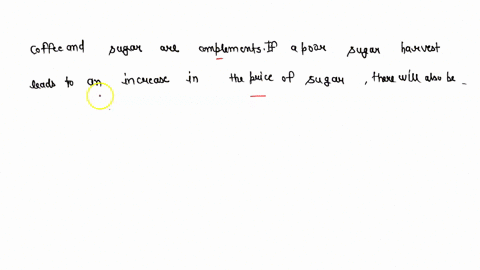 coffee and sugar are complements. If a poor sugar harvest
leads to an increase in the price of sugar, there will also be _